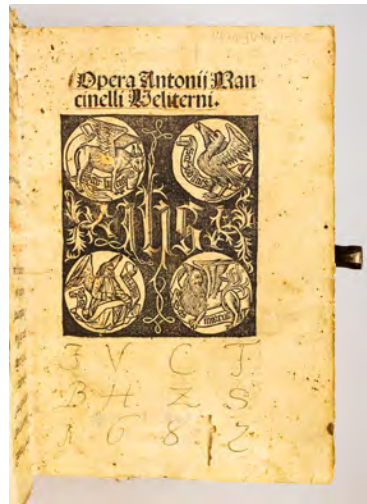 Opera Antonij Man
cinelli Veliterni.
ihs
3 V C T
B H Z S
1 6 8 2